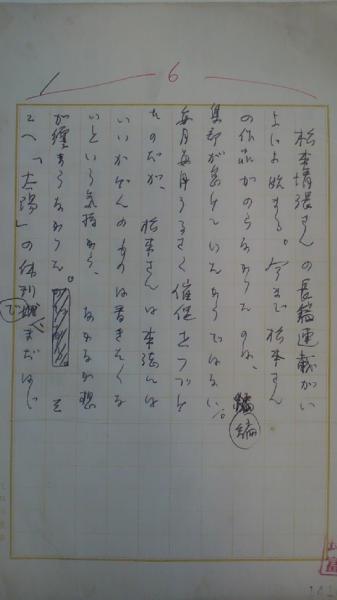 6
松本清張さんの長篇連載がい
よいよ始まる。今まで松本さん
の作品がのらなかったのは、編
集部が怠けていたわけではない。
毎月毎月うるさく催促をつづけ
たのだが、松本さんは本誌には
いいかげんのものは書きたくな
いという気持から、なかなか想
が纏まらなかった。そ
こへ「太陽」の休刊でまだはじ